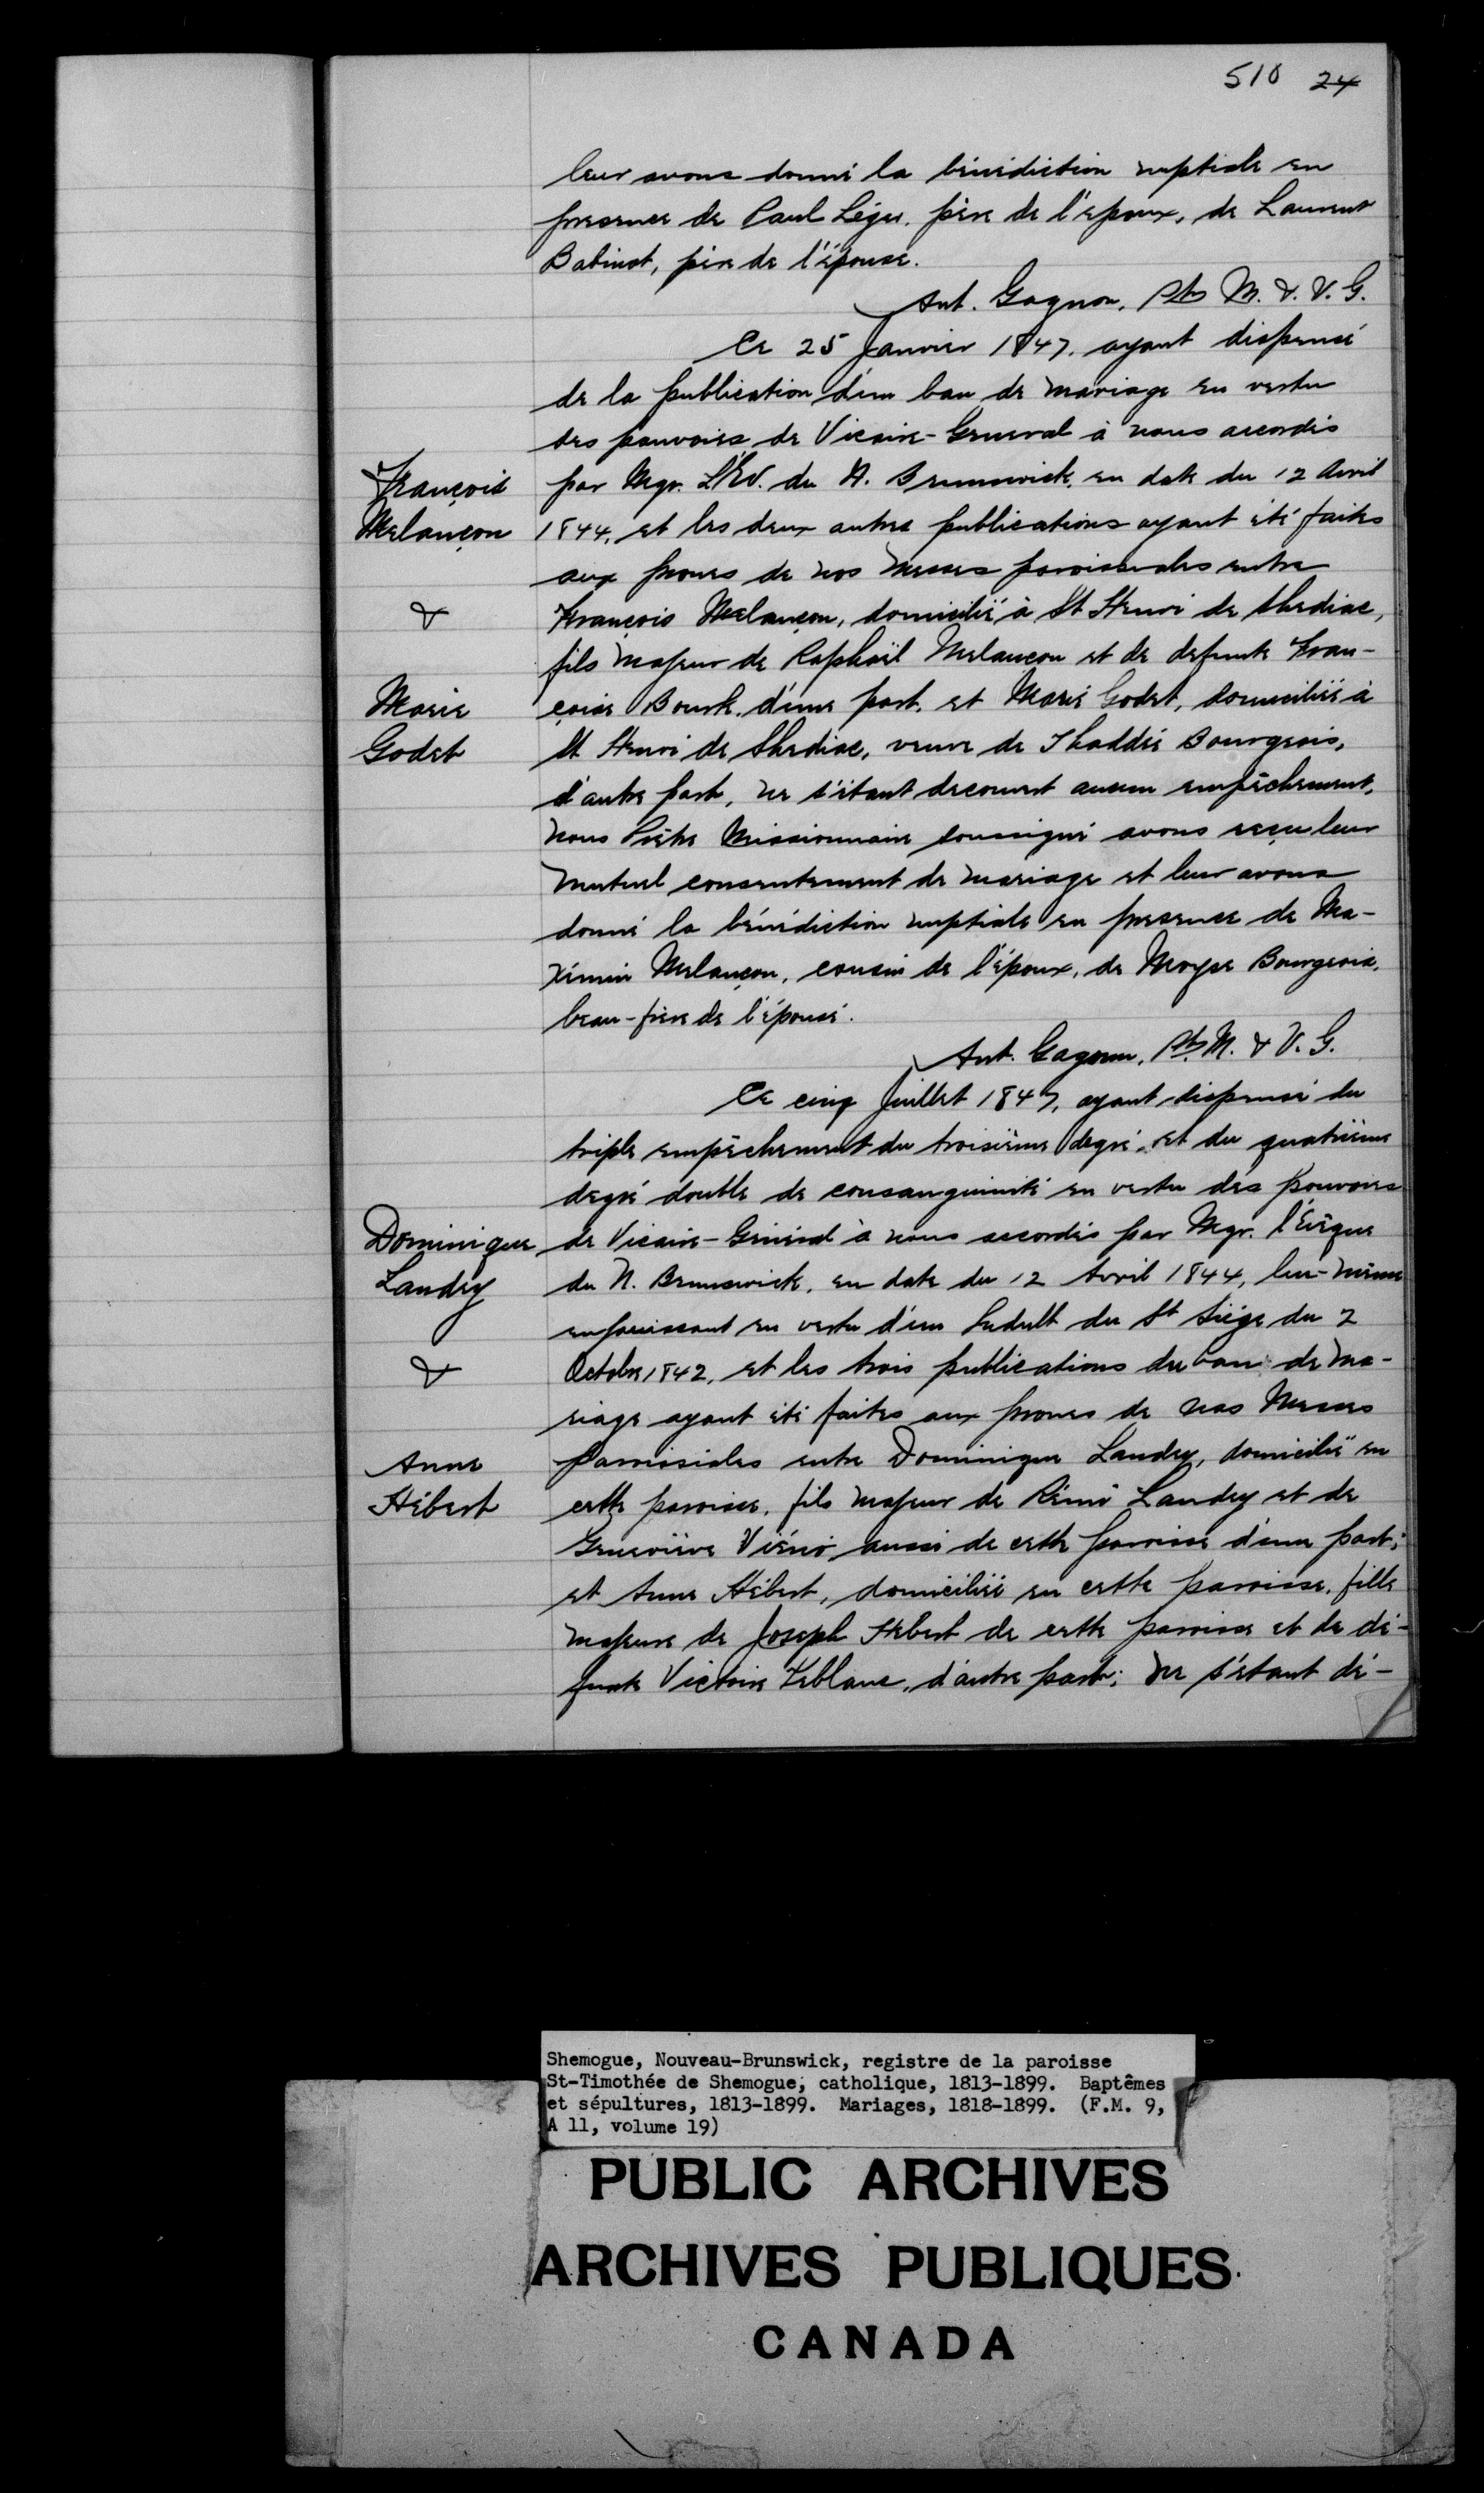 510 24
leur avons donné la bénédiction nuptiale en
presence de Paul Léger, père de l'epoux, de Laurent
Babinot, père de l'épouse.
Ant. Gagnon, Ptr M. & V. G.
Ce 25 Janvier 1847, ayant dispensé
de la publication d'un ban de mariage en vertu
des pouvoirs de Vicaire-General à nous accordés
François
par Mgr. L'Ev. du N. Brunswick, en date du 12 Avril
Melançon
1844, et les deux autres publications ayant été faites
aux prones de nos messes paroissiales entre
&
François Melançon, domicilié à St Henri de Shediac,
fils majeur de Raphaël Melançon et de defunte Fran-
Marie
çoise Bourk, d'une part, et Marie Godet, domiciliée à
Godet
St Henri de Shediac, veuve de Thaddée Bourgeois,
d'autre part, ne s'étant decouvert aucun empêchement,
nous Prêtre Missionnaire soussigné avons reçu leur
mutuel consentement de mariage et leur avons
donné la bénédiction nuptiale en presence de Ma-
ximin Melançon, cousin de l'époux, de Moyse Bourgeois,
beau-frère de l'épouse.
Ant. Gagnon, Ptr. M. & V. G.
Ce cinq Juillet 1847, ayant dispensé du
triple empêchement du troisième degré et du quatrième
degré double de consanguinité en vertu des pouvoirs
Dominique
de Vicaire-Général à nous accordés par Mgr. l'Évêque
Landry
du N. Brunswick, en date du 12 Avril 1844, lui-même
en jouissant en vertu d'un Indult du St Siège du 2
&
Octobre 1842, et les trois publications du ban de ma-
riage ayant été faites aux prones de nos Messes
Anne
Paroissiales entre Dominique Landry, domicilié en
Hébert
cette paroisse, fils majeur de Rémi Landry et de
Geneviève Viéno aussi de cette paroisse d'une part;
et Anne Hébert, domiciliée en cette paroisse, fille
majeure de Joseph Hebert de cette paroisse et de dé-
funte Victoire Leblanc, d'autre part; ne s'étant dé-
Shemogue, Nouveau-Brunswick, registre de la paroisse
St-Timothée de Shemogue, catholique, 1813-1899. Baptêmes
et sépultures, 1813-1899. Mariages, 1818-1899. (F.M. 9,
A 11, volume 19)
PUBLIC ARCHIVES
ARCHIVES PUBLIQUES
CANADA